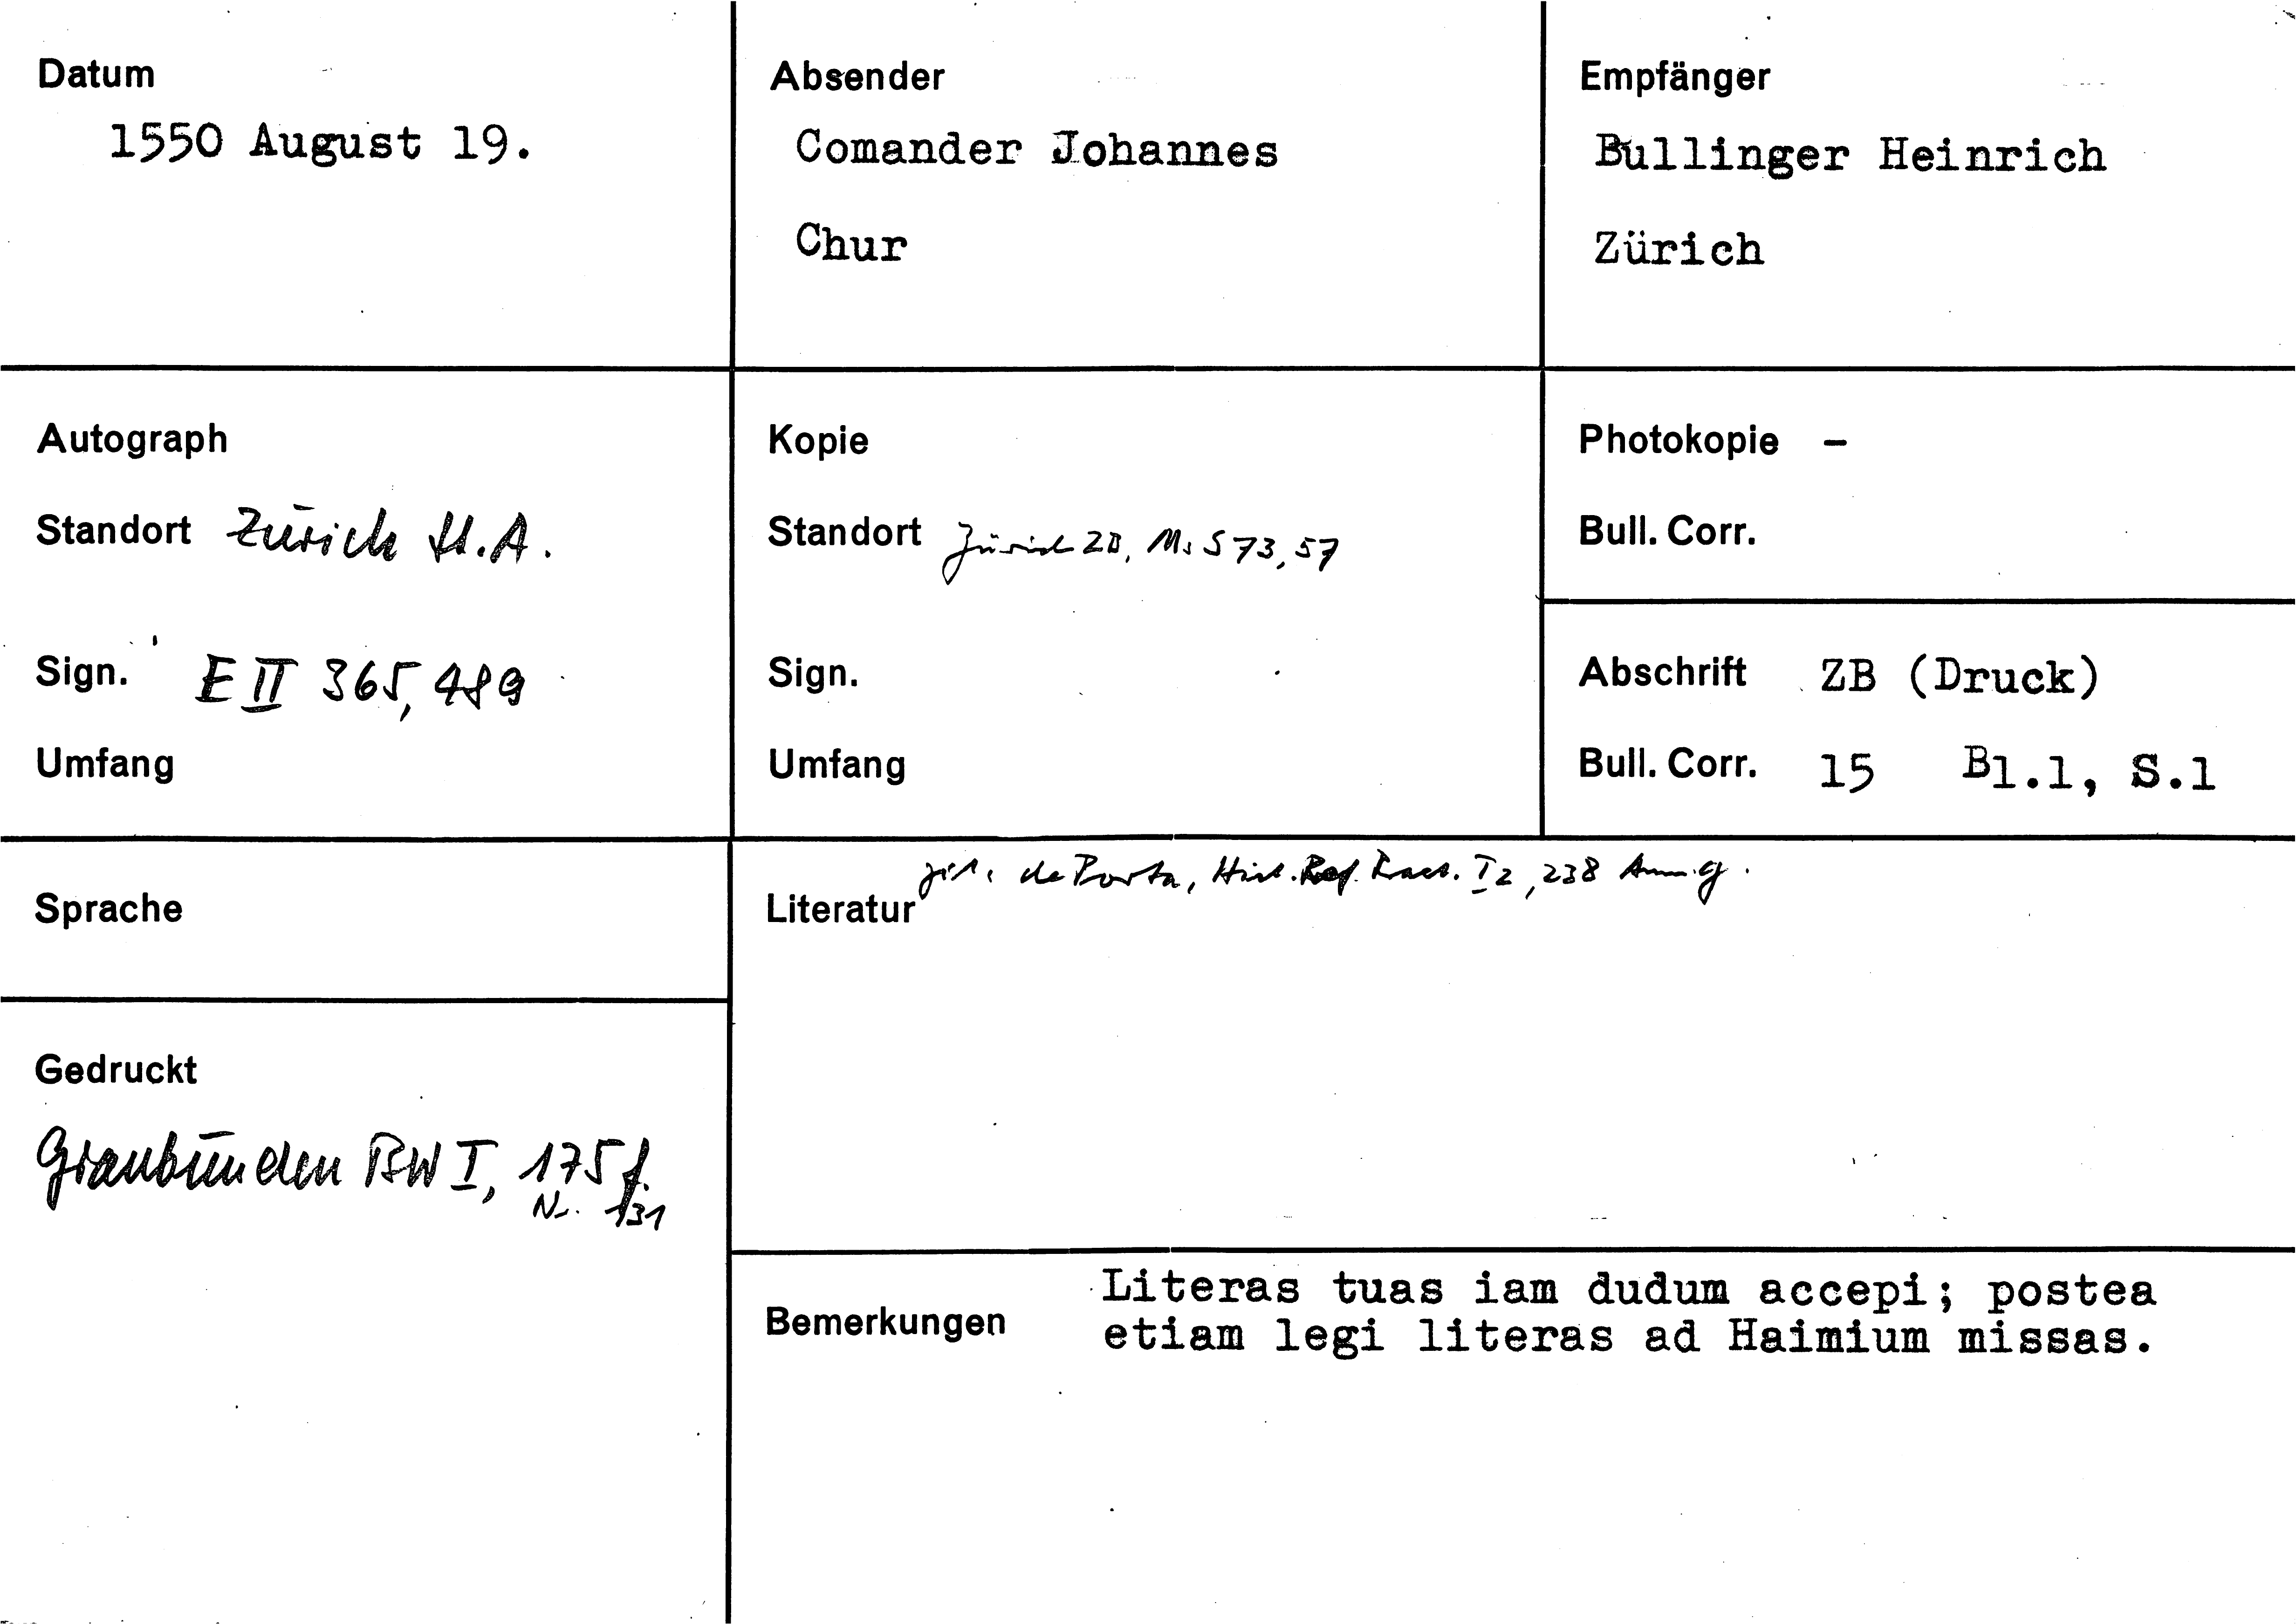 Datum
1550 August 19.
Absender
Comander Johannes
Chur
Empfänger
Bullinger Heinrich
Zürich
Autograph
Standort Zürich St.A.
Sign. E II 365, 489
Umfang
Kopie
Standort Zürich ZB, Ms S 73, 57
Sign.
Umfang
Photokopie –
Bull. Corr.
Abschrift ZB (Druck)
Bull. Corr. 15 Bl.1, S.1
Sprache
Gedruckt
Graubünden BW I, 175 f.
Nr. 131
zit. de Porta, Hist. Ref. Raet. I 2, 238 Anm. g.
Literatur
Bemerkungen
Literas tuas iam dudum accepi; postea
etiam legi literas ad Haimium missas.